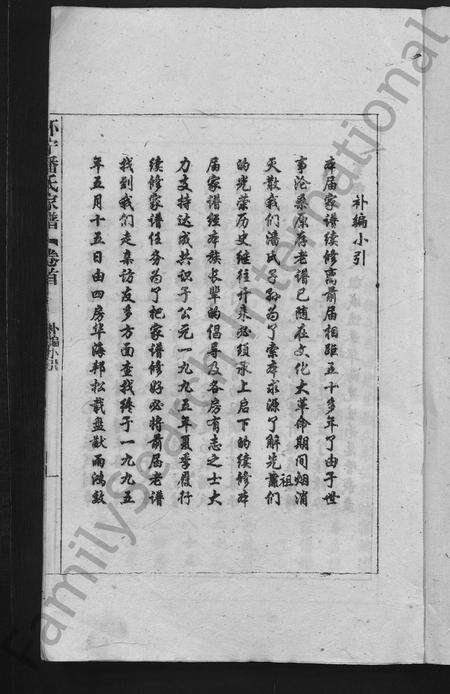 补编小引
本届家谱续修离前届相距五十多年了由于世
事沧桑原存老谱已随在文化大革命期间烟消
灭散我们潘氏子孙为了索本求源了解先祖辈们
的光荣历史继往开来必须承上启下的续修本
届家谱经本族长辈的倡导及各房有志之士大
力支持达成共识于公元一九九五年夏季履行
续修家谱任务为了把家谱修好必将前届老谱
找到我们走亲访友多方面查找终于一九九五
年五月十五日由四房华海邦松载盘献雨鸿敏
怀宁潘氏家谱 卷首 补编小引
FamilySearch International